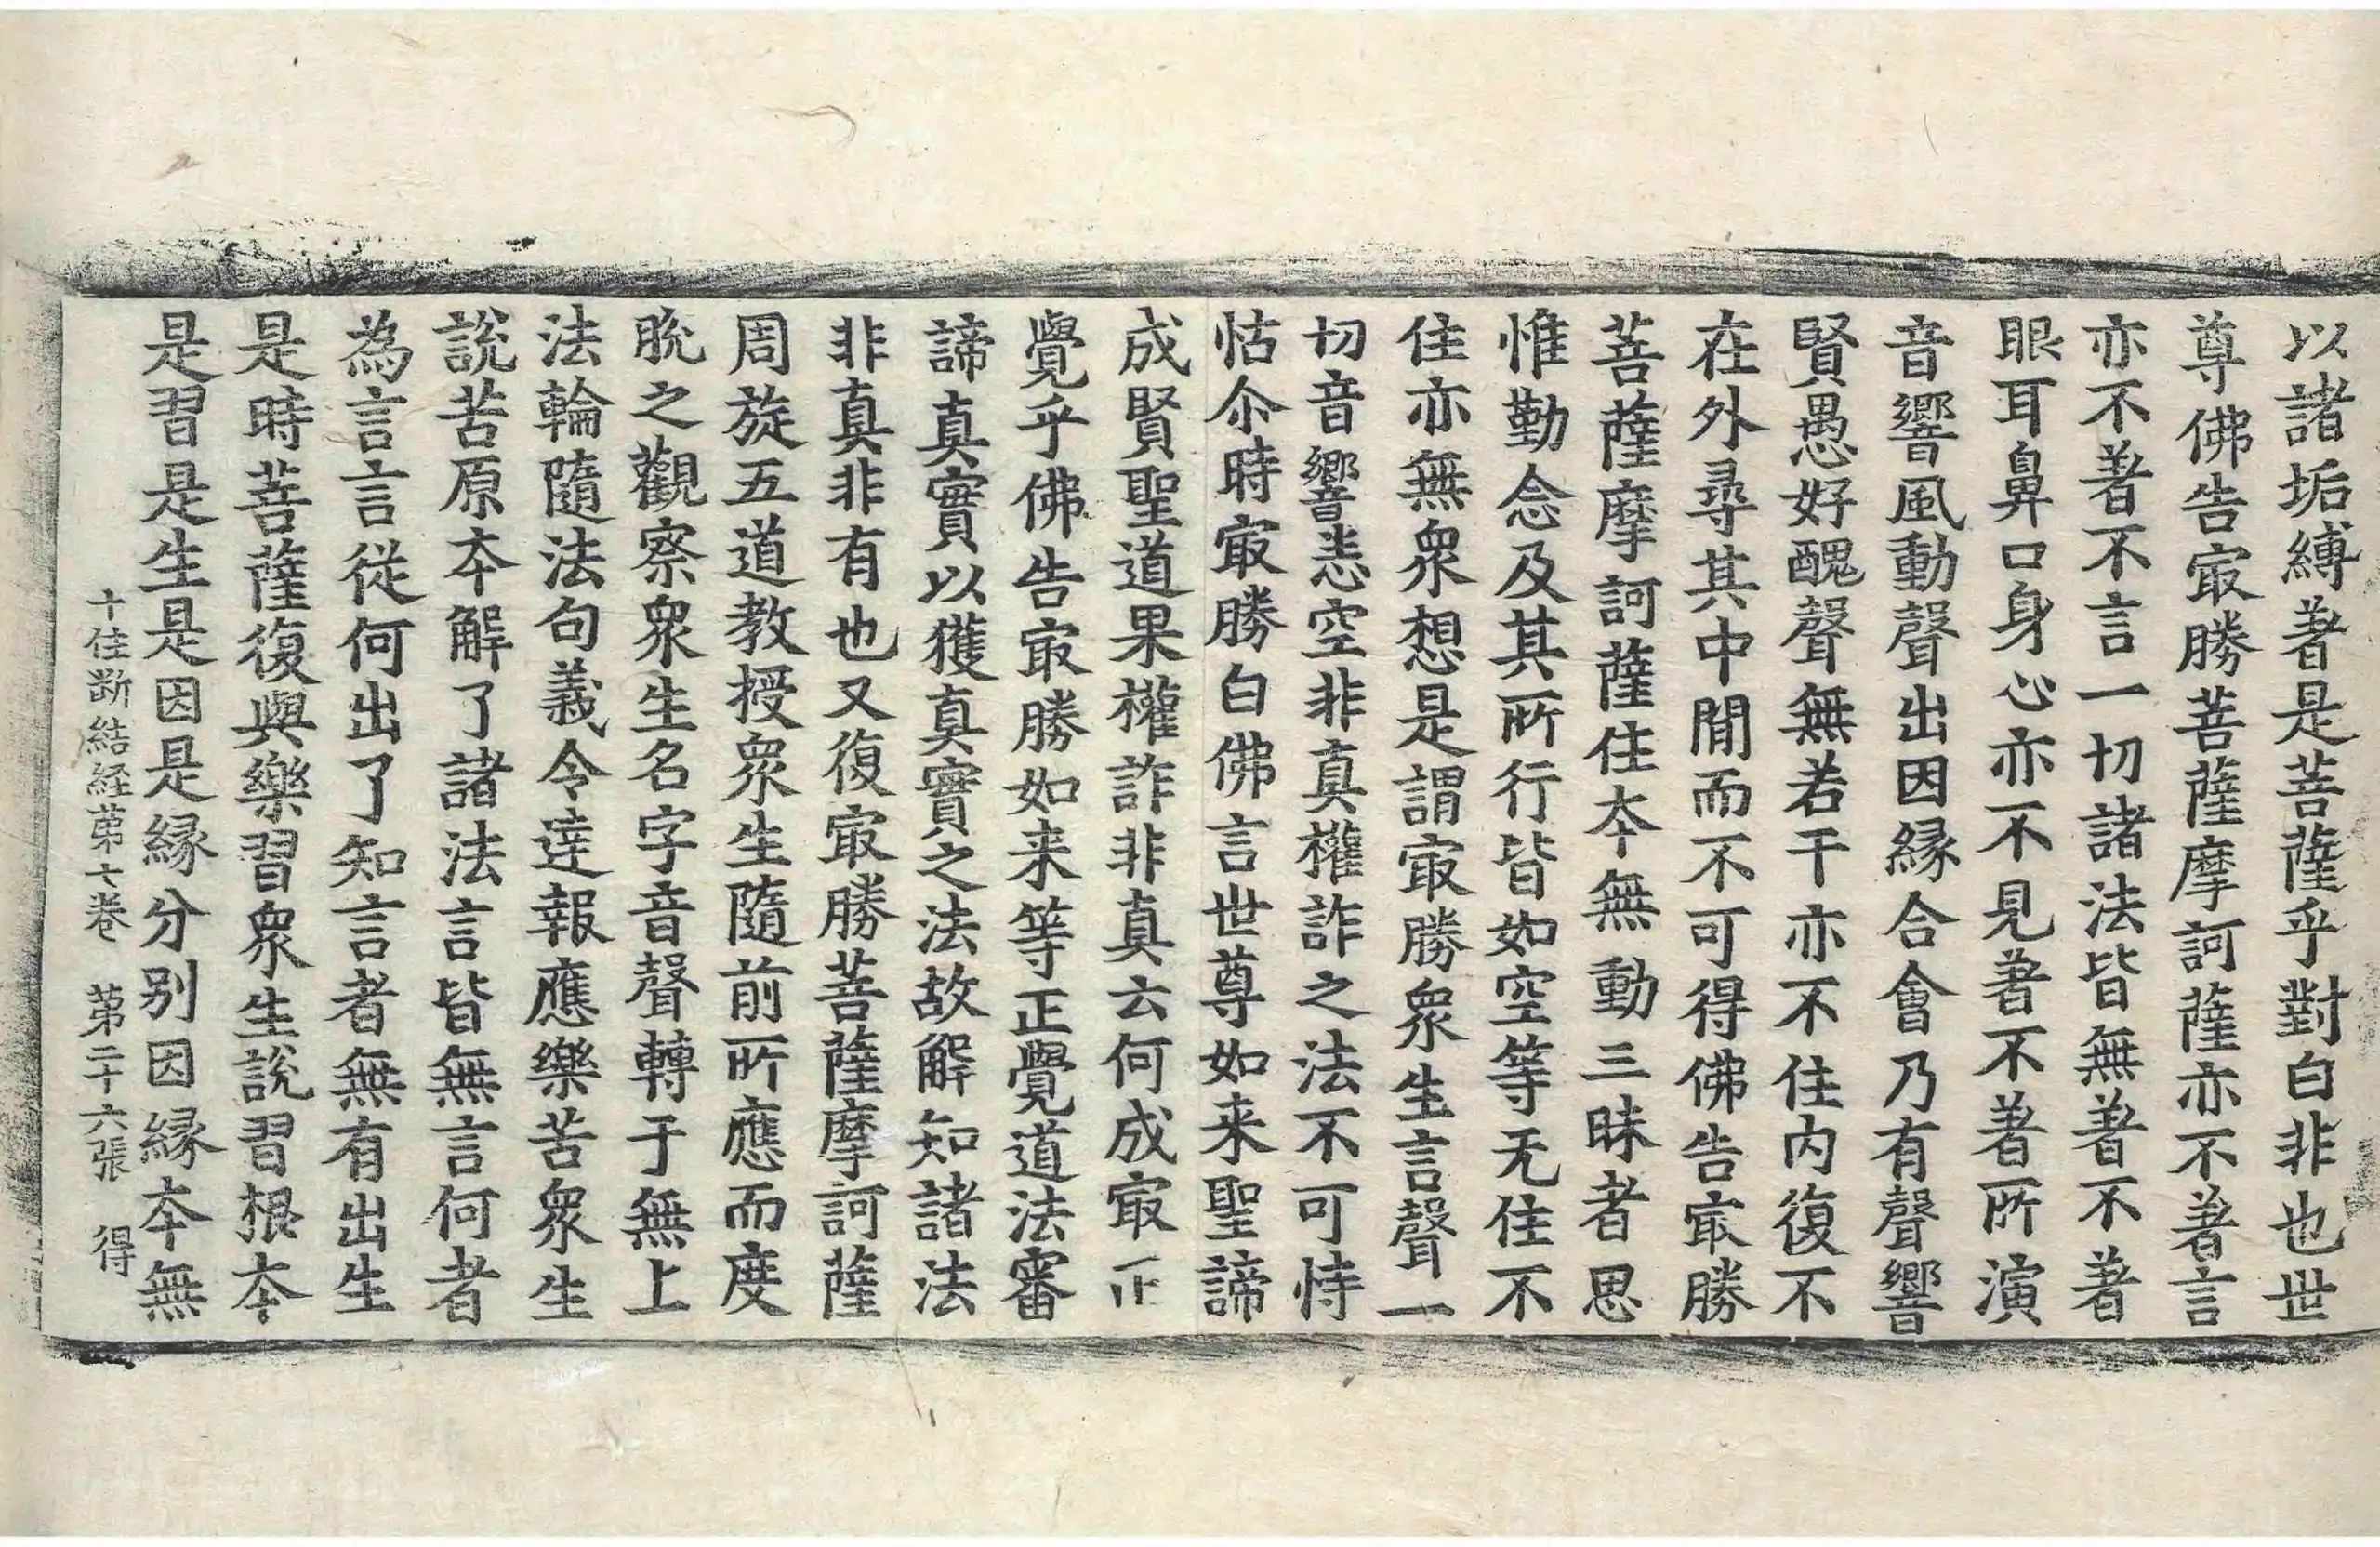 以諸垢縛著是菩薩乎對白非也世
尊佛告㝡勝菩薩摩訶薩亦不著言
亦不著不言一切諸法皆無著不著
眼耳鼻口身心亦不見著不著所演
音響風動聲出因緣合會乃有聲響
賢愚好醜聲無若干亦不住內復不
在外尋其中間而不可得佛告㝡勝
菩薩摩訶薩住本無動三昧者思
惟勤念及其所行皆如空等无住不
住亦無衆想是謂㝡勝衆生言聲一
切音響悉空非真權詐之法不可恃
怙尒時㝡勝白佛言世尊如来聖諦
成賢聖道果權詐非真云何成㝡正
覺乎佛告㝡勝如来等正覺道法審
諦真實以獲真實之法故解知諸法
非真非有也又復㝡勝菩薩摩訶薩
周旋五道教授衆生隨前所應而度
脫之觀察衆生名字音聲轉于無上
法輪隨法句義令達報應樂苦衆生
說苦原本解了諸法言皆無言何者
為言言從何出了知言者無有出生
是時菩薩復與樂習衆生說習根本
是習是生是因是緣分別因緣本無
十住断結経苐七卷 苐二十六張 得